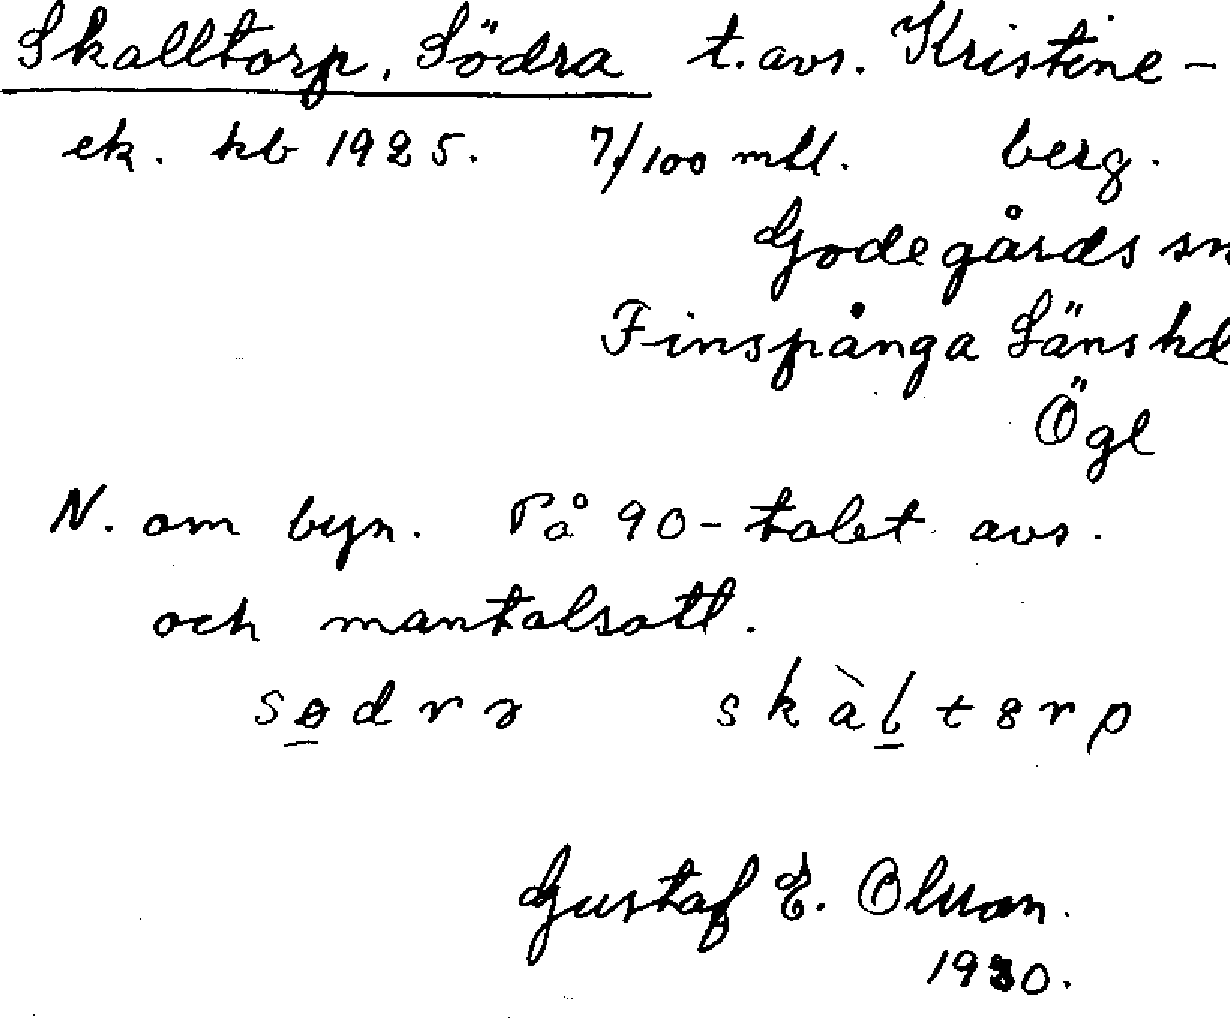 Skalltorp, Södra t. avs. Kristine-
ek. kb 1925. 7/100 mtl. berg.
Godegårds sn
Finspånga Läns hd
Ögl
N. om byn. På 90-talet avs.
och mantalsatt.
sødrɂ skàltɜrp
Gustaf E. Olsson.
1930.